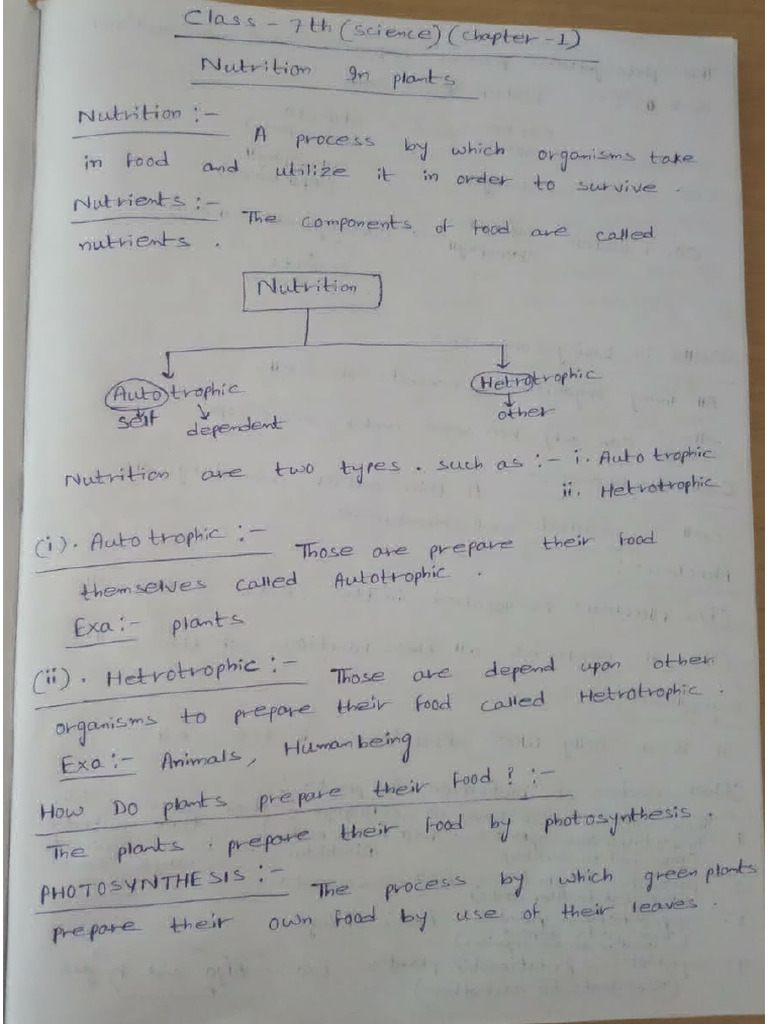 Class - 7th (science) (chapter -1)
Nutrition In plants
Nutrition :-
A process by which organisms take
in food and utilize it in order to survive.
Nutrients :- The components of food are called
nutrients.
Nutrition
Autotrophic
Hetrotrophic
self
dependent
other
Nutrition are two types. such as :- i. Auto trophic
ii. Hetrotrophic
(i). Auto trophic :- Those are prepare their food
themselves called Autotrophic.
Exa :- plants
(ii). Hetrotrophic :- Those are depend upon other
organisms to prepare their food called Hetrotrophic.
Exa :- Animals, Human being
How Do plants prepare their food ? :-
The plants prepare their food by photosynthesis.
PHOTOSYNTHESIS :- The process by which green plants
prepare their own food by use of their leaves.